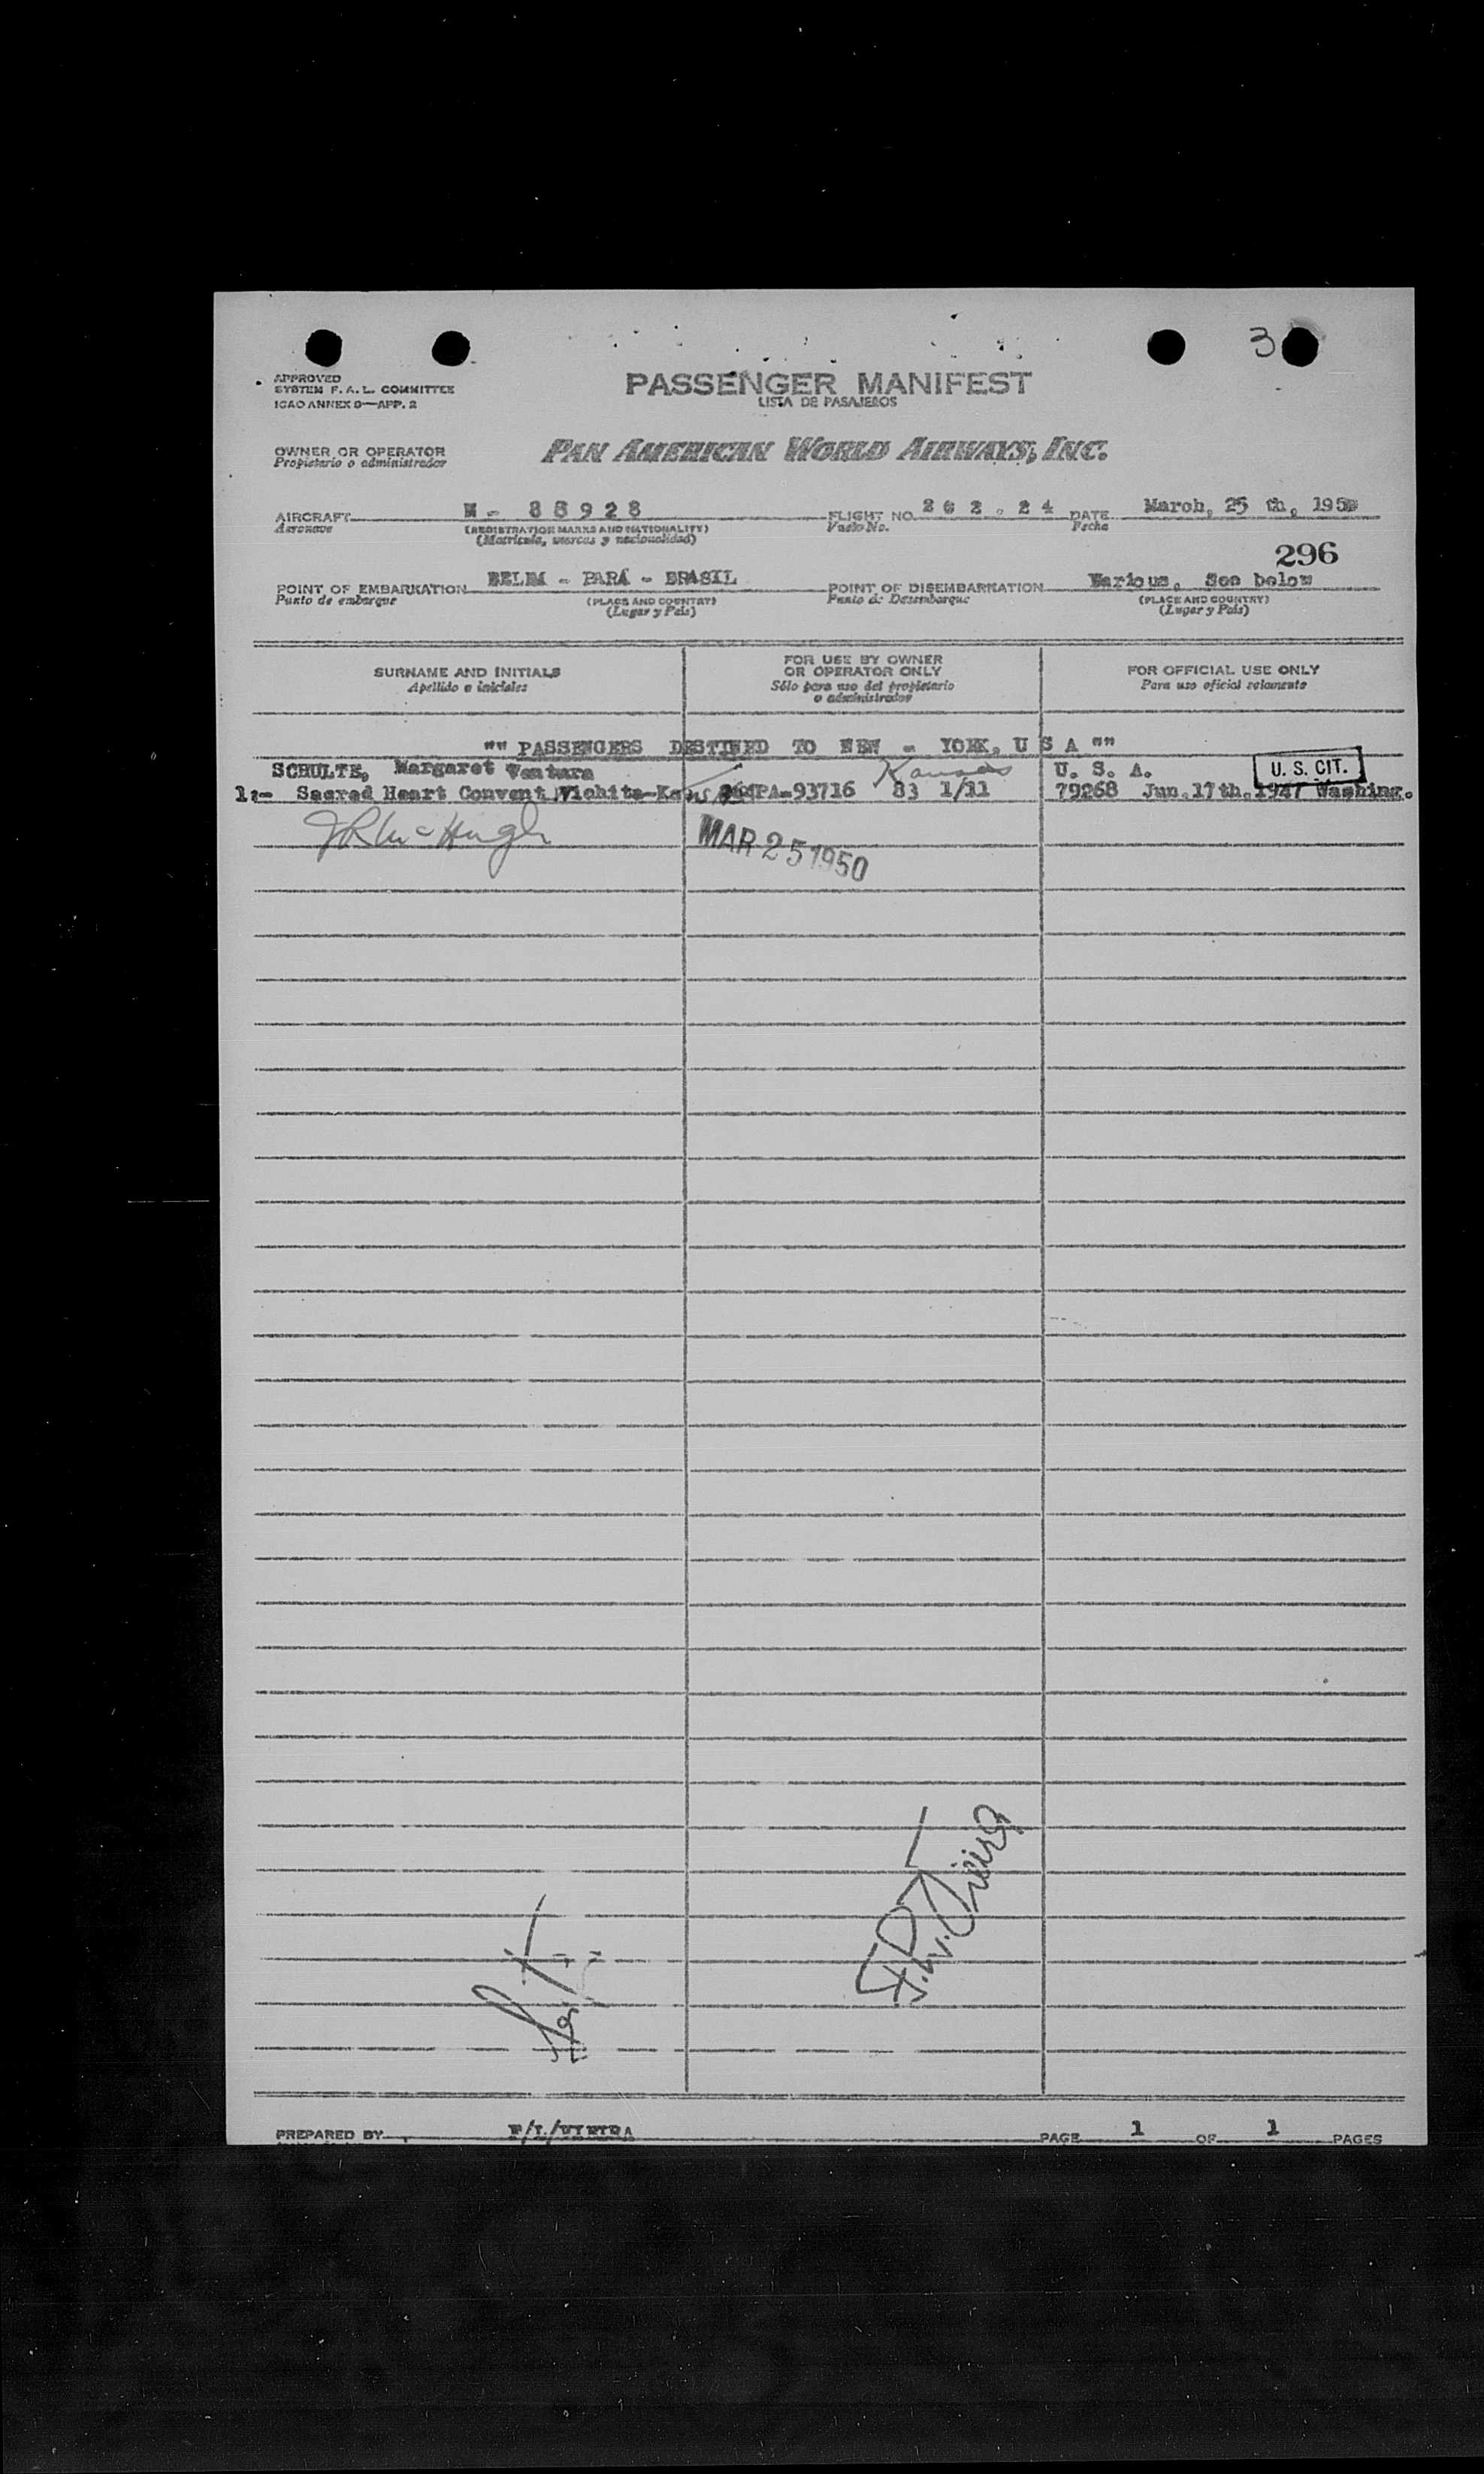 3
APPROVED
SYSTEM F. A. L. COMMITTEE
ICAO ANNEX 9—APP. 2
PASSENGER MANIFEST
LISTA DE PASAJEROS
OWNER OR OPERATOR
Propietario o administrador
PAN AMERICAN WORLD AIRWAYS, INC.
AIRCRAFT N - 88928 FLIGHT NO. 202.24 DATE March, 25 th, 1950
Aeronave (REGISTRATION MARKS AND NATIONALITY) Vuelo No. Fecha
(Matrícula, marcas y nacionalidad)
296
POINT OF EMBARKATION BELEM - PARÁ - BRASIL POINT OF DISEMBARKATION Various, See below
Punto de embarque (PLACE AND COUNTRY) Punto de Desembarque (PLACE AND COUNTRY)
(Lugar y País) (Lugar y País)
SURNAME AND INITIALS FOR USE BY OWNER OR OPERATOR ONLY FOR OFFICIAL USE ONLY
Apellido e iniciales Sólo para uso del propietario o administrador Para uso oficial solamente
"" PASSENGERS DESTINED TO NEW - YORK, U S A ""
SCHULTE, Margaret Ventura Kansas U. S. A. U. S. CIT.
1:- Sacred Heart Convent Wichita-Kansas PA-93716 83 1/11 79268 Jun.17th.1947 Washing.
JR McHugh
MAR 25 1950
PREPARED BY F/L/VIEIRA PAGE 1 OF 1 PAGES